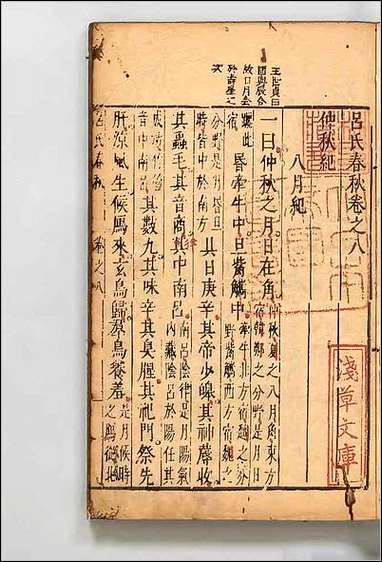 呂氏春秋卷之八
仲秋紀
八月紀
一曰仲秋之月日在角
仲秋夏之八月角東方
宿韓鄭之分野是月日
躔此宿
昏牽牛中旦觜觿中
牽牛北方宿越之分
野觜觿西方宿魏之
分野是月昏旦
時皆中於南方
其日庚辛其帝少皞其神蓐收
其蟲毛其音商律中南呂
南呂陰律是月陽氣
內藏陰呂於陽任其
成
音中南呂
其數九其味辛其臭腥其祀門祭先
肝涼風生候鴈來玄鳥歸羣鳥養羞
是月候時
之鴈從北
王
國
故日月會
於壽星之
次
呂氏春秋
卷之八
淺草文庫